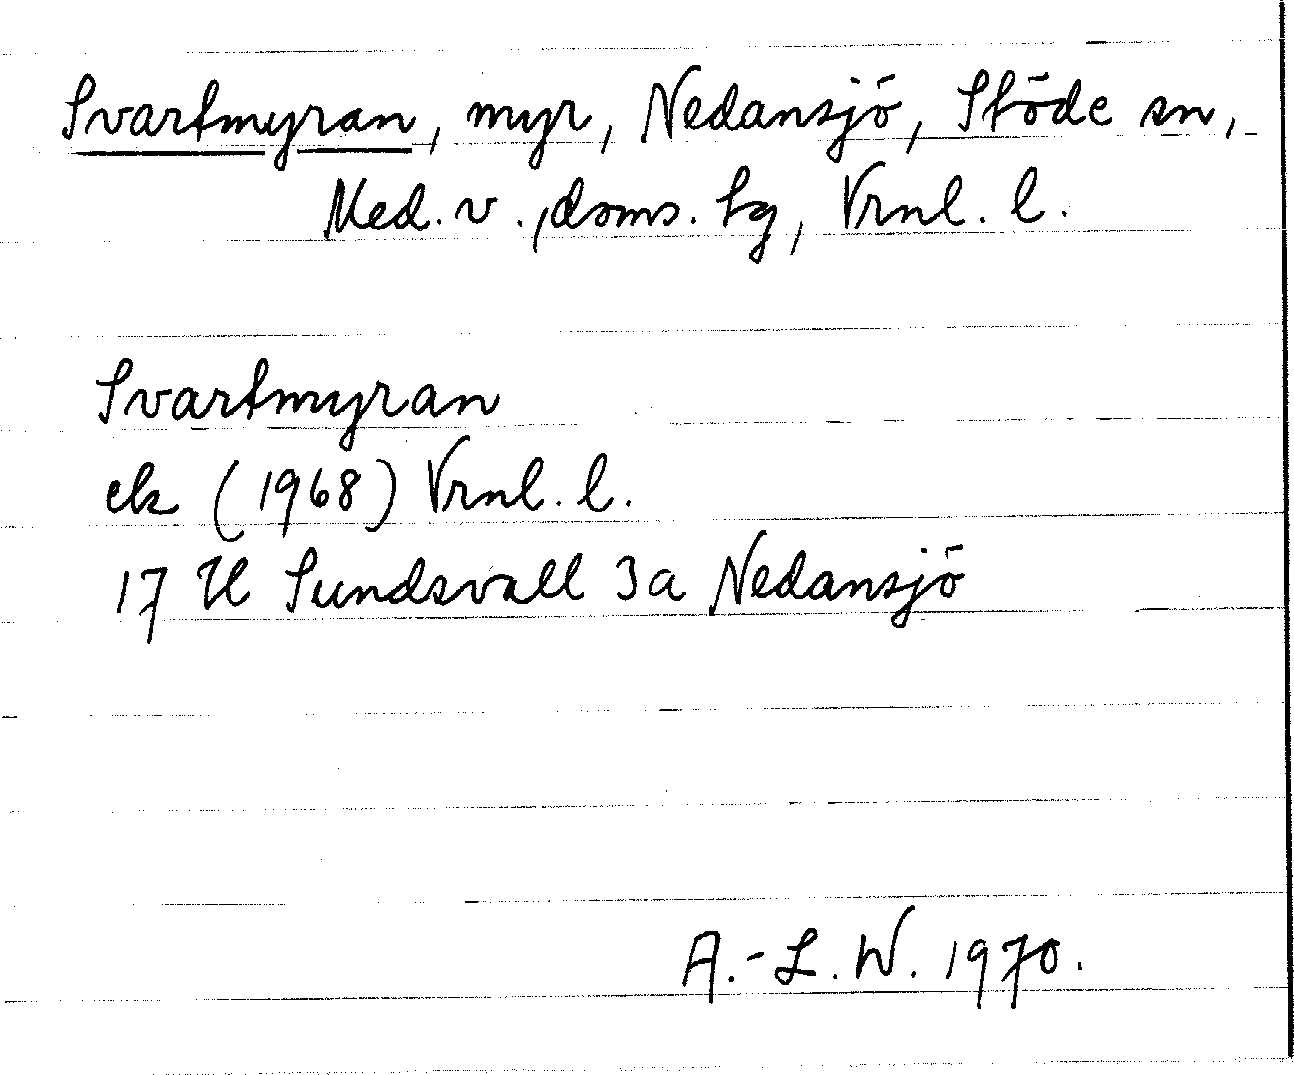 Svartmyran, myr, Nedansjö, Stöde sn,
Med. v., doms. hg, Vrnl. l.
Svartmyran
ek (1968) Vrnl. l.
17 H Sundsvall 3a Nedansjö
A.-L. W. 1970.